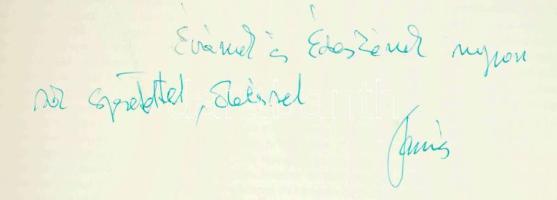 Évának és Édesének nagyon
sok szeretettel, öleléssel
János